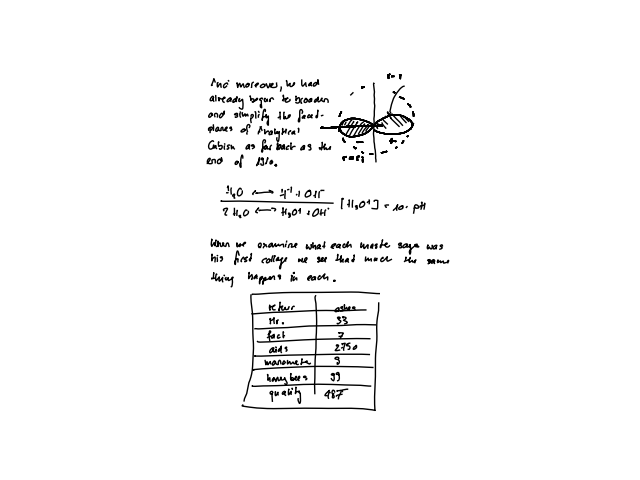 And moreover, he had
already begun to broaden
and simplify the facet-
planes of Analytical
Cubism as far back as the
end of 1910.
H₂O ⟷ H⁺ + OH⁻
2 H₂O ⟷ H₃O⁺ + OH⁻
[H₃O⁺] = 10- pH
When we examine what each master says was
his first collage we see that much the same
thing happens in each.
ashen
Mr. 33
fact 7
aids 2750
manometer 9
honeybees 99
quality 487